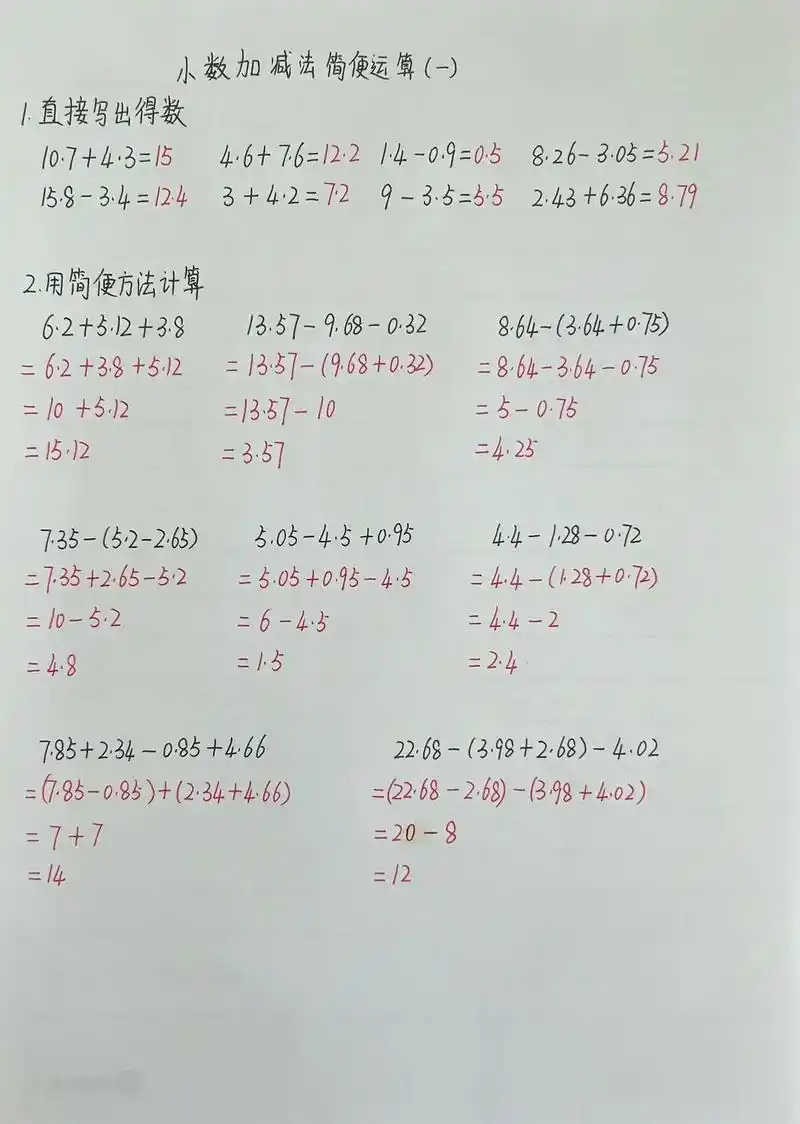 小数加减法简便运算(一)
1.直接写出得数
10.7+4.3=15 4.6+7.6=12.2 1.4-0.9=0.5 8.26-3.05=5.21
15.8-3.4=12.4 3+4.2=7.2 9-3.5=5.5 2.43+6.36=8.79
2.用简便方法计算
6.2+5.12+3.8 13.57-9.68-0.32 8.64-(3.64+0.75)
=6.2+3.8+5.12 =13.57-(9.68+0.32) =8.64-3.64-0.75
=10+5.12 =13.57-10 =5-0.75
=15.12 =3.57 =4.25
7.35-(5.2-2.65) 5.05-4.5+0.95 4.4-1.28-0.72
=7.35+2.65-5.2 =5.05+0.95-4.5 =4.4-(1.28+0.72)
=10-5.2 =6-4.5 =4.4-2
=4.8 =1.5 =2.4
7.85+2.34-0.85+4.66 22.68-(3.98+2.68)-4.02
=(7.85-0.85)+(2.34+4.66) =(22.68-2.68)-(3.98+4.02)
=7+7 =20-8
=14 =12